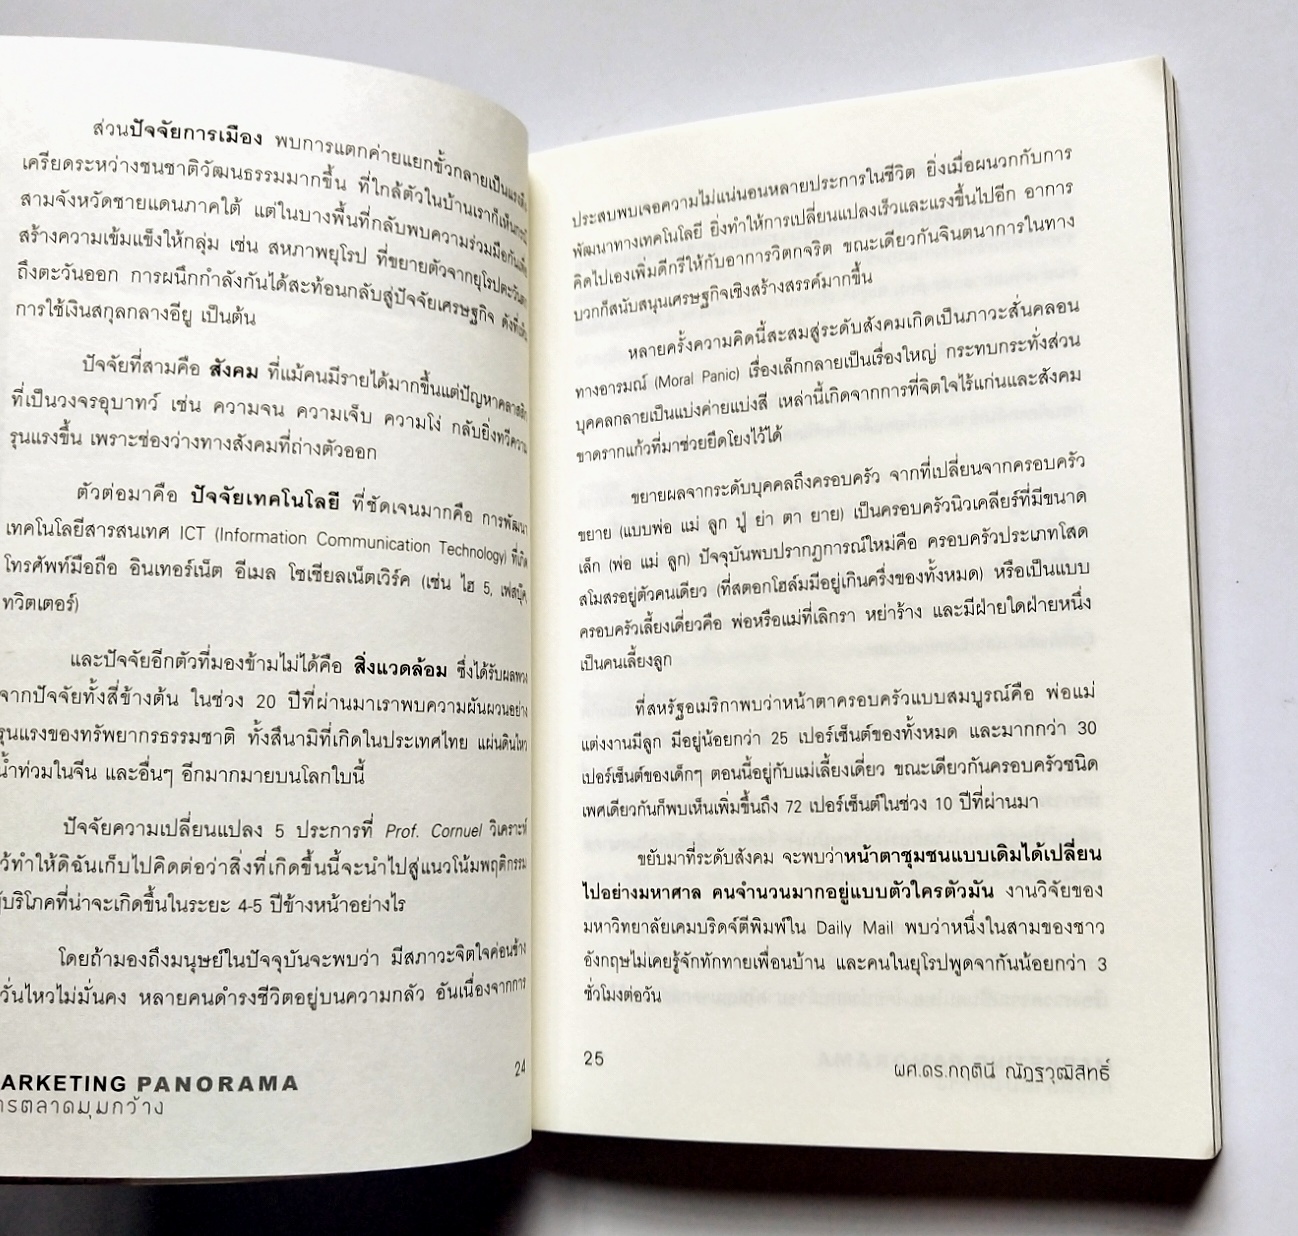 ส่วนปัจจัยการเมือง พบการแตกค่ายแยกขั้วกลายเป็นแรงตึง
เครียดระหว่างชนชาติวัฒนธรรมมากขึ้น ที่ใกล้ตัวในบ้านเราก็เห็นกรณี
สามจังหวัดชายแดนภาคใต้ แต่ในบางพื้นที่กลับพบความร่วมมือกันเพื่อ
สร้างความเข้มแข็งให้กลุ่ม เช่น สหภาพยุโรป ที่ขยายตัวจากยุโรปตะวันตก
ถึงตะวันออก การผนึกกำลังกันได้สะท้อนกลับสู่ปัจจัยเศรษฐกิจ ดังที่เห็น
การใช้เงินสกุลกลางอียู เป็นต้น
ปัจจัยที่สามคือ สังคม ที่แม้คนมีรายได้มากขึ้นแต่ปัญหาคลาสสิก
ที่เป็นวงจรอุบาทว์ เช่น ความจน ความเจ็บ ความโง่ กลับยิ่งทวีความ
รุนแรงขึ้น เพราะช่องว่างทางสังคมที่ถ่างตัวออก
ตัวต่อมาคือ ปัจจัยเทคโนโลยี ที่ชัดเจนมากคือ การพัฒนา
เทคโนโลยีสารสนเทศ ICT (Information Communication Technology) ที่เกิด
โทรศัพท์มือถือ อินเทอร์เน็ต อีเมล โซเชียลเน็ตเวิร์ค (เช่น ไฮ 5, เฟสบุ๊ค,
ทวิตเตอร์)
และปัจจัยอีกตัวที่มองข้ามไม่ได้คือ สิ่งแวดล้อม ซึ่งได้รับผลพวง
จากปัจจัยทั้งสี่ข้างต้น ในช่วง 20 ปีที่ผ่านมาเราพบความผันผวนอย่าง
รุนแรงของทรัพยากรธรรมชาติ ทั้งสึนามิที่เกิดในประเทศไทย แผ่นดินไหว
น้ำท่วมในจีน และอื่นๆ อีกมากมายบนโลกใบนี้
ปัจจัยความเปลี่ยนแปลง 5 ประการที่ Prof. Cornuel วิเคราะห์
ไว้ทำให้ดิฉันเก็บไปคิดต่อว่าสิ่งที่เกิดขึ้นนี้จะนำไปสู่แนวโน้มพฤติกรรม
ผู้บริโภคที่น่าจะเกิดขึ้นในระยะ 4-5 ปีข้างหน้าอย่างไร
โดยถ้ามองถึงมนุษย์ในปัจจุบันจะพบว่า มีสภาวะจิตใจค่อนข้าง
หวั่นไหวไม่มั่นคง หลายคนดำรงชีวิตอยู่บนความกลัว อันเนื่องจากการ
24
ARKETING PANORAMA
ารตลาดมุมกว้าง
ประสบพบเจอความไม่แน่นอนหลายประการในชีวิต ยิ่งเมื่อผนวกกับการ
พัฒนาทางเทคโนโลยี ยิ่งทำให้การเปลี่ยนแปลงเร็วและแรงขึ้นไปอีก อาการ
คิดไปเองเพิ่มดีกรีให้กับอาการวิตกจริต ขณะเดียวกันจินตนาการในทาง
บวกก็สนับสนุนเศรษฐกิจเชิงสร้างสรรค์มากขึ้น
หลายครั้งความคิดนี้สะสมสู่ระดับสังคมเกิดเป็นภาวะสั่นคลอน
ทางอารมณ์ (Moral Panic) เรื่องเล็กกลายเป็นเรื่องใหญ่ กระทบกระทั่งส่วน
บุคคลกลายเป็นแบ่งค่ายแบ่งสี เหล่านี้เกิดจากการที่จิตใจไร้แก่นและสังคม
ขาดรากแก้วที่มาช่วยยึดโยงไว้ได้
ขยายผลจากระดับบุคคลถึงครอบครัว จากที่เปลี่ยนจากครอบครัว
ขยาย (แบบพ่อ แม่ ลูก ปู่ ย่า ตา ยาย) เป็นครอบครัวนิวเคลียร์ที่มีขนาด
เล็ก (พ่อ แม่ ลูก) ปัจจุบันพบปรากฏการณ์ใหม่คือ ครอบครัวประเภทโสด
สโมสรอยู่ตัวคนเดียว (ที่สตอกโฮล์มมีอยู่เกินครึ่งของทั้งหมด) หรือเป็นแบบ
ครอบครัวเลี้ยงเดี่ยวคือ พ่อหรือแม่ที่เลิกรา หย่าร้าง และมีฝ่ายใดฝ่ายหนึ่ง
เป็นคนเลี้ยงลูก
ที่สหรัฐอเมริกาพบว่าหน้าตาครอบครัวแบบสมบูรณ์คือ พ่อแม่
แต่งงานมีลูก มีอยู่น้อยกว่า 25 เปอร์เซ็นต์ของทั้งหมด และมากกว่า 30
เปอร์เซ็นต์ของเด็กๆ ตอนนี้อยู่กับแม่เลี้ยงเดี่ยว ขณะเดียวกันครอบครัวชนิด
เพศเดียวกันก็พบเห็นเพิ่มขึ้นถึง 72 เปอร์เซ็นต์ในช่วง 10 ปีที่ผ่านมา
ขยับมาที่ระดับสังคม จะพบว่าหน้าตาชุมชนแบบเดิมได้เปลี่ยน
ไปอย่างมหาศาล คนจำนวนมากอยู่แบบตัวใครตัวมัน งานวิจัยของ
มหาวิทยาลัยเคมบริดจ์ตีพิมพ์ใน Daily Mail พบว่าหนึ่งในสามของชาว
อังกฤษไม่เคยรู้จักทักทายเพื่อนบ้าน และคนในยุโรปพูดจากันน้อยกว่า 3
ชั่วโมงต่อวัน
25
ผศ.ดร.กฤตินี ณัฏฐวุฒิสิทธิ์